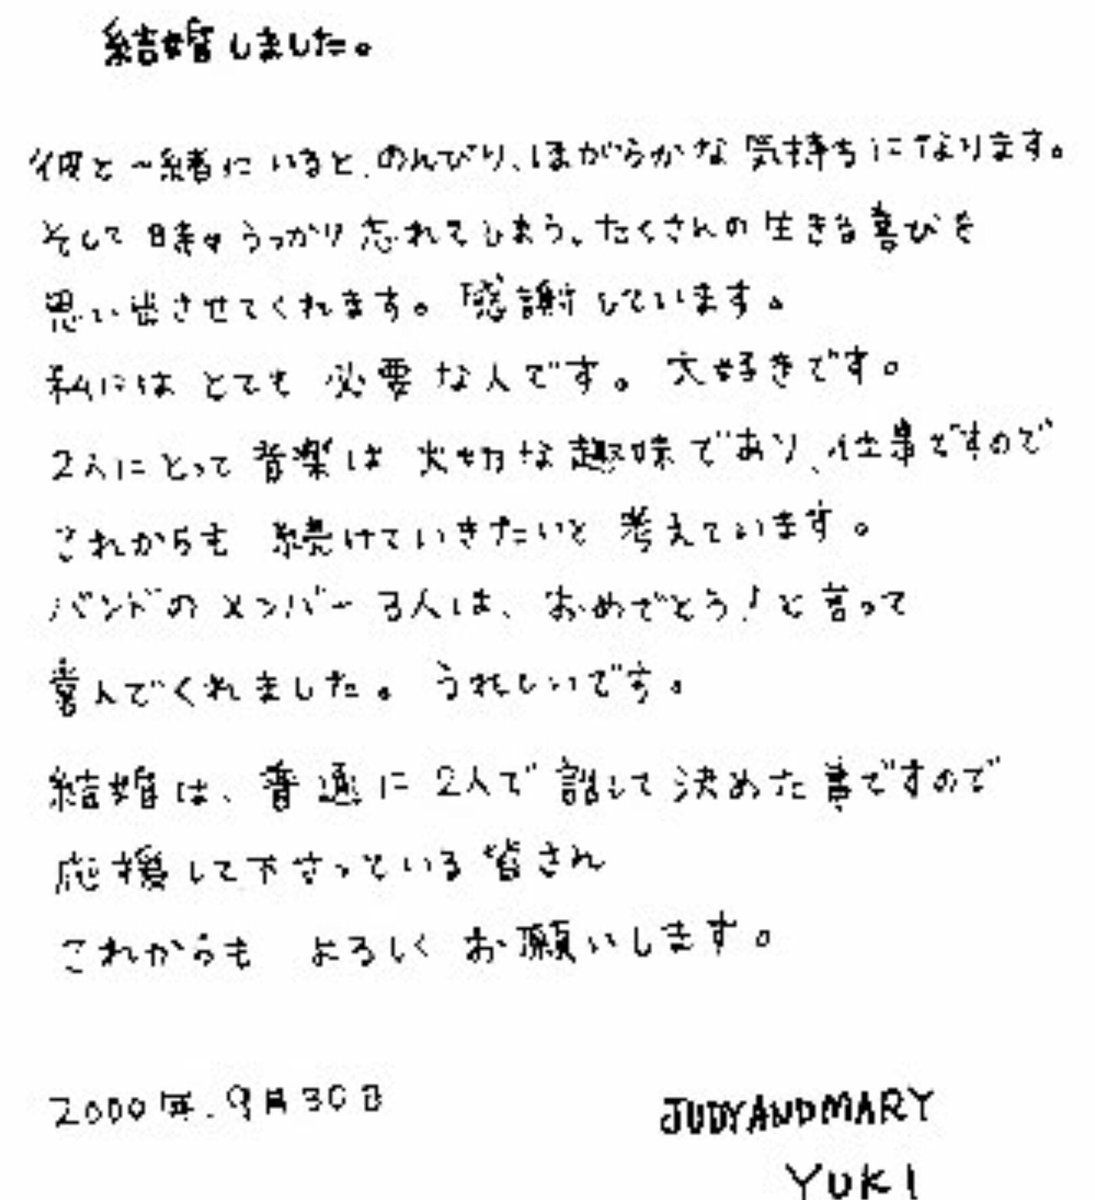 結婚しました。
彼と一緒にいると、のんびり、ほがらかな気持ちになります。
そして時々うっかり忘れてしまう、たくさんの生きる喜びを
思い出させてくれます。感謝しています。
私にはとても必要な人です。大好きです。
2人にとって音楽は大切な趣味であり、仕事ですので
これからも続けていきたいと考えています。
バンドのメンバー3人は、おめでとう!と言って
喜んでくれました。うれしいです。
結婚は、普通に2人で話して決めた事ですので
応援して下さっている皆さん
これからもよろしくお願いします。
2000年.9月30日
JUDYANDMARY
YUKI